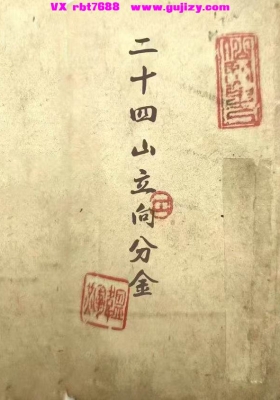 VX rbt7688 www.gujizy.com
二十四山立向分金